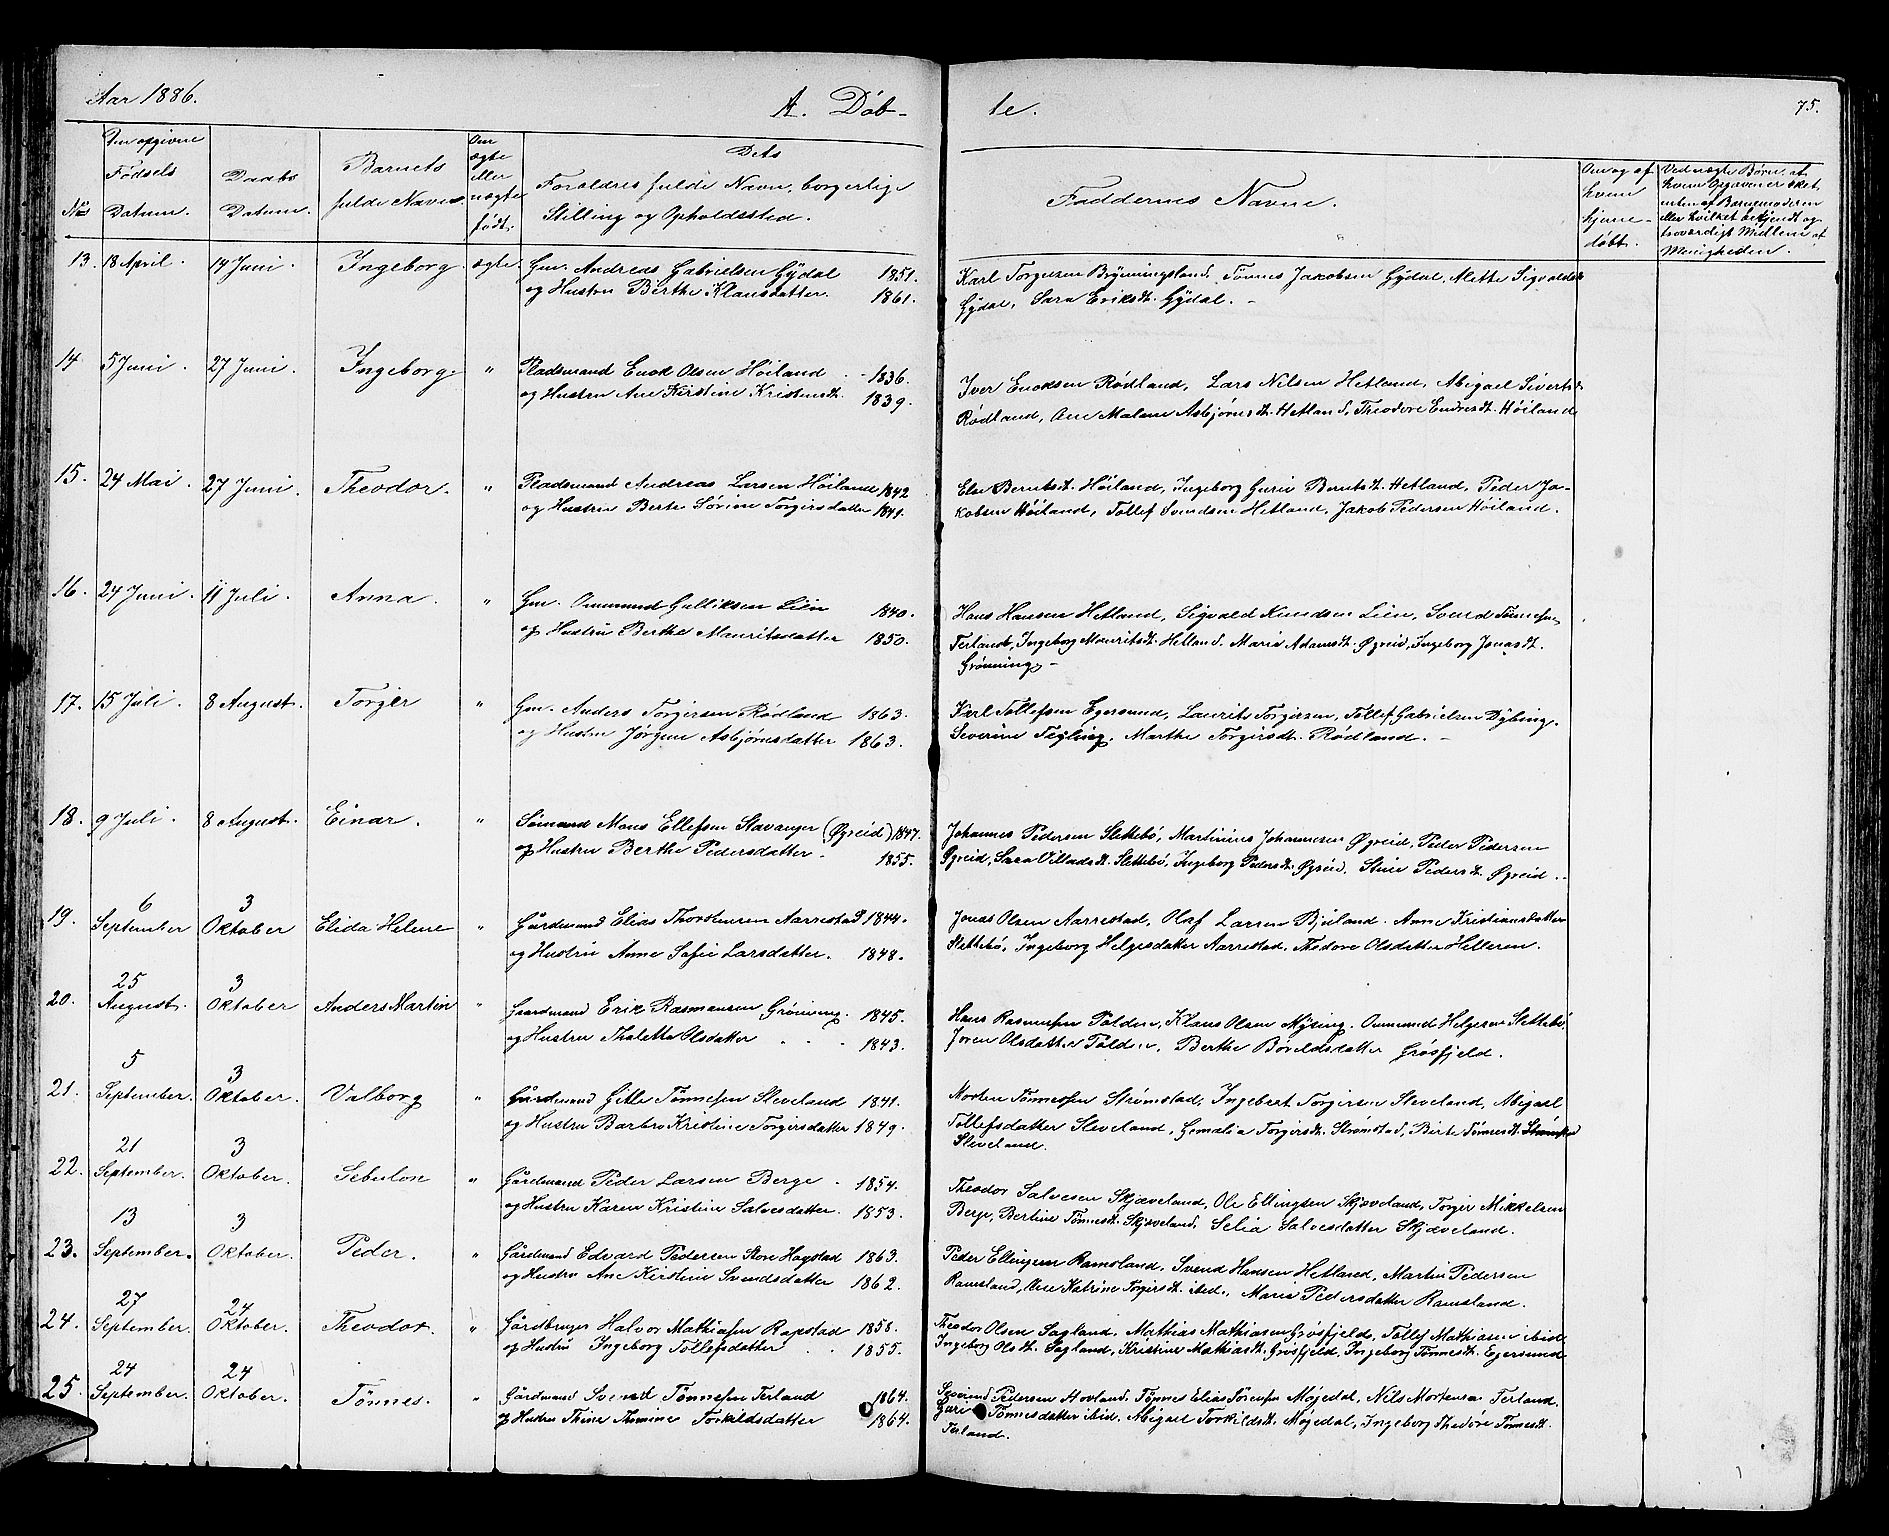 Aar 1886.
A. Døb-
te.
75.
Nos
Den opgivne
Fødsels
Datum.
Daabs
Datum.
Barnets
fulde Navn.
Om
ægte
eller
uægte
født.
Dets
Forældres fulde Navn, borgerlige
Stilling og Opholdssted.
Faddernes Navne.
Om og af
hvem
hjemme-
døbt.
Ved uægte Børn, at
hvem Opgaven er sket
enten af Barnemoderen
eller hvilket bekjendt og
troværdigt Medlem af
Menigheden.
13. 18 April. 14 Juni. Ingeborg. ægte. Gm. Andreas Gabrielsen Gydal 1851.
og Hustru Berthe Klausdatter. 1861.
Karl Torgersen Brynningsland, Tønnes Jakobsen Gydal, Alette Sigvaldsdt
Gydal, Sara Eriksdt. Gydal. -
14. 5 Juni. 27 Juni. Ingeborg. " Pladsmand Enok Olsen Høiland - 1836.
og Hustru Ane Kirstine Kristensdt. 1839.
Iver Enoksen Rødland, Lars Nilsen Hetland, Abigael Sivertsdt
Rødland, Ane Malene Asbjørnsdt. Hetland, Theodore Endresdt. Høiland
15. 24 Mai. 27 Juni. Theodor. " Pladsmand Andreas Larsen Høiland 1842
og Hustru Berte Sørine Torgersdatter 1841.
Else Berntsdt. Høiland, Ingeborg Gurie Berntsdt. Hetland, Peder Ja-
kobsen Høiland, Tollef Svendsen Hetland, Jakob Pedersen Høiland.
16. 24 Juni. 11 Juli. Anna. " Gm. Ommund Gulliksen Liin 1840.
og Hustru Berthe Mauritsdatter 1850.
Hans Hansen Hetland, Sigvald Knudsen Liin, Svend Tønnesen
Terland, Ingeborg Mauritsdt. Hetland. Marie Adamsdt. Øgreid, Ingeborg Jonasdt.
Grønning. -
17. 15 Juli. 8 August. Torger " Gm. Anders Torgersen Rødland 1863.
og Hustru Jørgine Asbjørnsdatter 1863.
Karl Tollefsen Egersund, Laurits Torgersen, Tollef Gabrielsen Dybing.
Severine Tegling, Marthe Torgersdt. Rødland. -
18. 9 Juli. 8 August. Einar. " Sømand Mons Ellefsen Stavanger (Øgreid) 1847.
og Hustru Berthe Pedersdatter. 1855.
Johannes Pedersen Slettebø, Martinius Johannesen Øgreid, Peder Pedersen
Øgreid, Sara Villadsdt. Slettebø, Ingeborg Pedersdt. Øgreid, Stine Pedersdt. Øgreid.
19. 6
September 3
Oktober Elida Helene " Gårdmand Elias Thorstensen Aarrestad 1844.
og Hustru Anne Sofie Larsdatter. 1848.
Jonas Olsen Aarrestad, Olaf Larsen Bjuland. Anne Kristiansdatter
Slettebø, Ingeborg Helgesdatter Aarrestad, Thodore Olsdatter Helleren.
20. 25
August. 3
Oktober Anders Martin " Gaardmand Erik Rasmussen Grønning. 1845.
og Hustru Thaletta Olsdatter 1843.
Hans Rasmussen Tolden, Klaus Olsen Mysing. Ommund Helgesen Slettebø,
Joren Olsdatter Tolden, Berthe Børildsdatter Grøsfjeld.
21. 5
September. 3
Oktober. Valborg " Gårdmand Gitle Tønnesen Sleveland 1841.
og Hustru Barbro Kristine Torgersdatter 1849.
Morten Tønnessen Strømstad, Ingebert Torgersen Sleveland, Abigael
Tollefsdatter Sleveland, Gemalia Torgersdt. Strømstad, Birte Tønnesdt. Strømstad
Sleveland.
22. 21
September. 3
Oktober. Sebulon " Gårdmand Peder Larsen Berge 1854.
og Hustru Karen Kristine Salvesdatter. 1853.
Theodor Salvesen Skjæveland, Ole Ellingsen Skjæveland, Torger Mikkelsen
Berge, Bertine Tønnesdt. Skjæveland, Selia Salvesdatter Skjæveland.
23. 13
September. 3
Oktober. Peder. " Gårdmand Edvard Pedersen Store Hagstad 1863.
og Hustru Ane Kirstine Svendsdatter 1862.
Peder Ellingsen Ramsland, Svend Hansen Hetland, Martin Pedersen
Ramsland, Ane Katrine Torgersdt. ibid., Maria Pedersdatter Ramsland.
24. 27
September. 24
Oktober. Theodor. " Gårdbruger Halvor Mathiasen Rapstad 1858.
og Hustru Ingeborg Tollefsdatter 1855.
Theodor Olsen Sagland, Mathias Mathiasen Grøsfjeld, Tollef Mathiasen ibid.
Ingeborg Olsdt. Sagland, Kristine Mathiasdt. Grøsfjeld, Ingeborg Tønnesdt. Egersund
25. 24
September. 24
Oktober. Tønnes. " Gårdmand Svend Tønnesen Terland 1864.
og Hustru Thine Tomine Torkildsdatter 1864.
Pedersen Hovland, Tønnes Elias Sørensen Møgedal, Nils Mortensen Terland.
Guri Tønnesdatter ibid, Abigael Torkildsdt. Møgedal, Ingeborg Thedore Tønnesdt.
Terland.